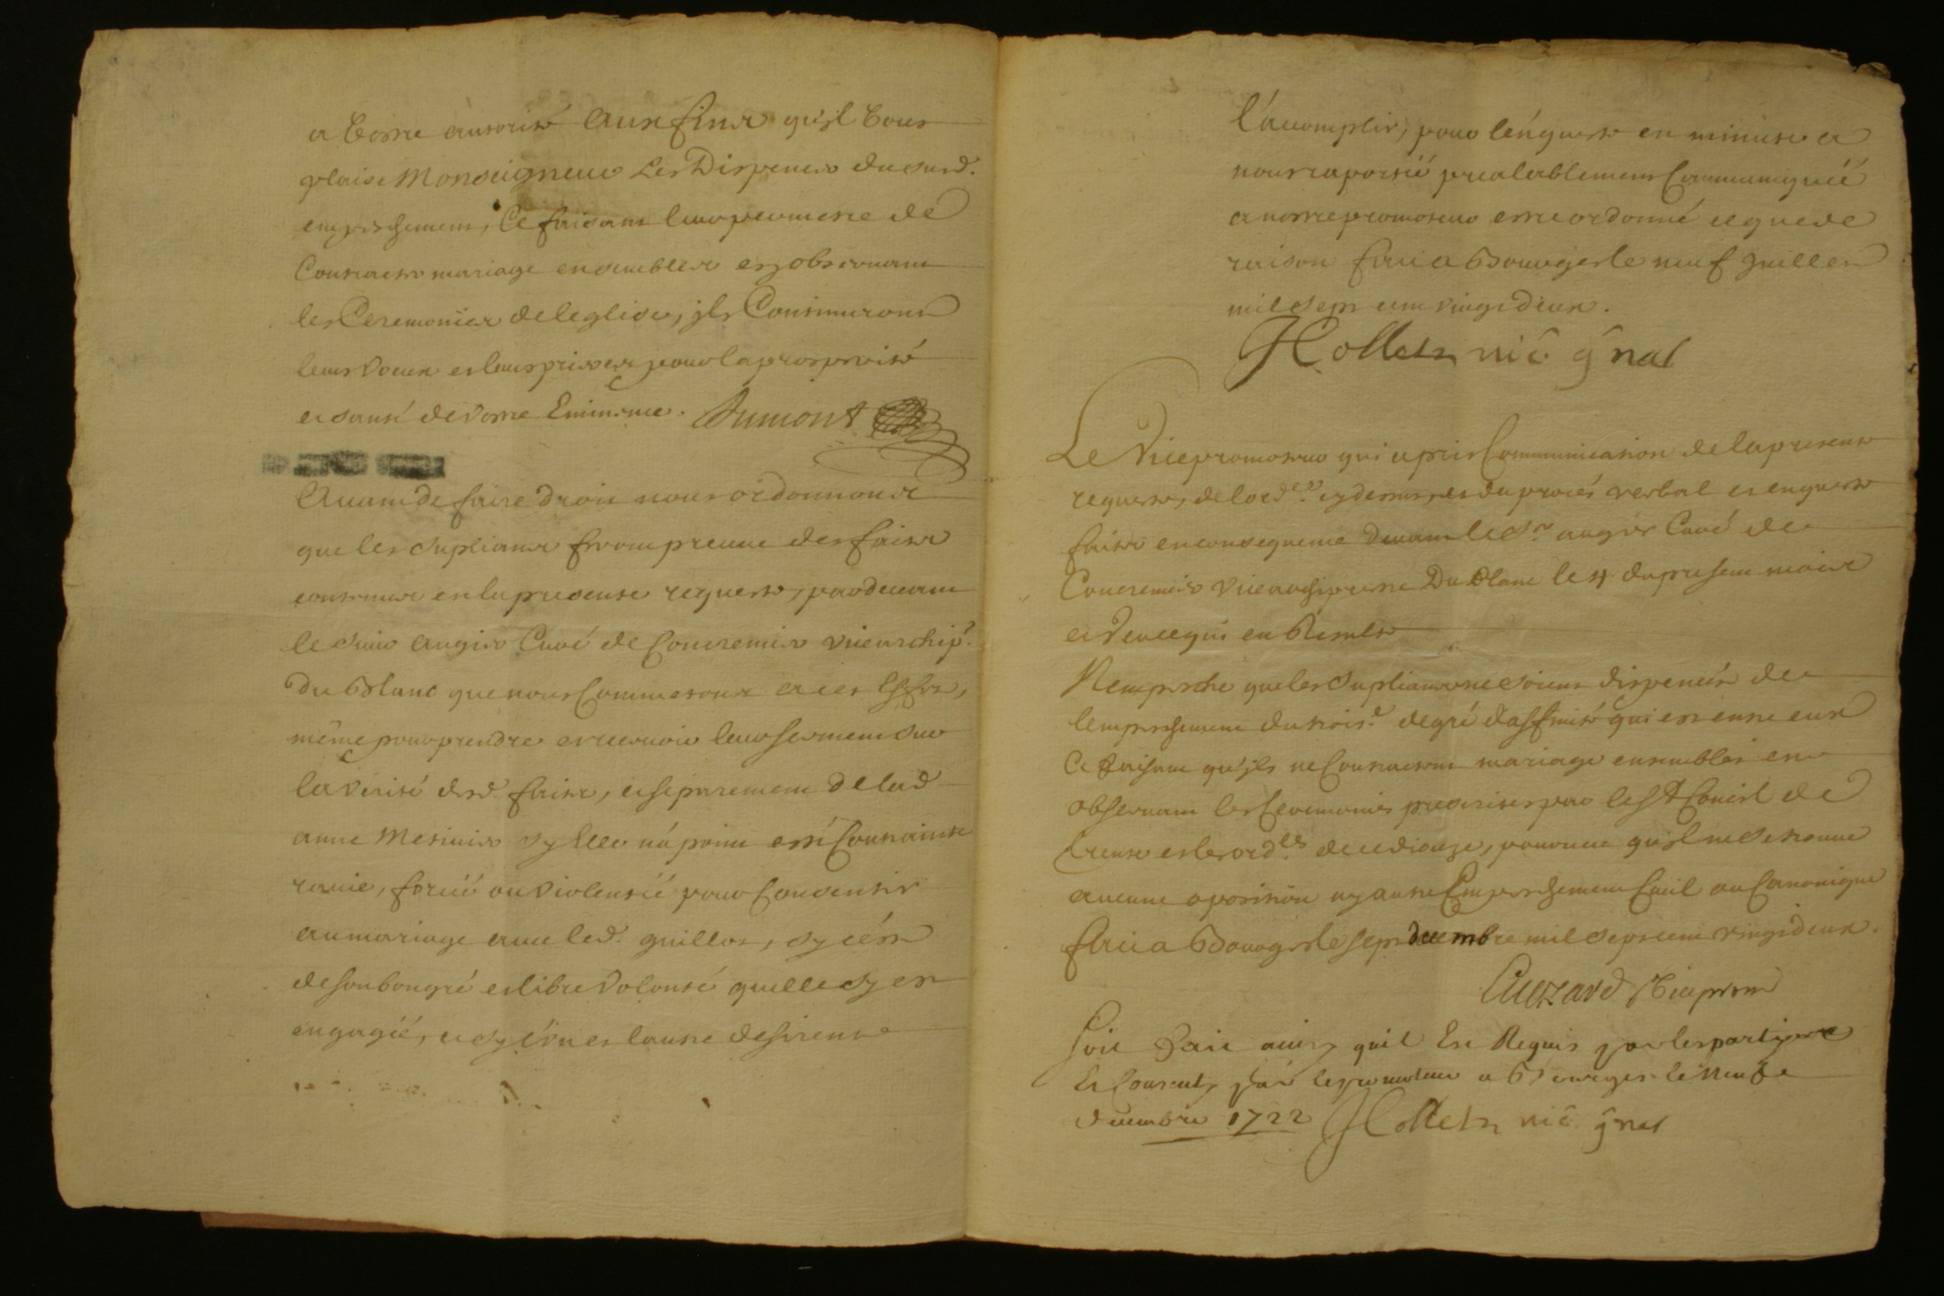 a votre autorité aux fins qu'il vous
plaise Monseigneur les Dispenser dususd.
empeschement, Ce faisant leur permettre de
Contracter mariage ensembles en observant
les Ceremonies de leglise, ils Continuront
leurs voeux et leurs prieres pour la prosperité
et santé de votre Eminence. Dumont
Avant de faire droit nous ordonnons
que les suplians feront preuve des faits
contenus en la presente requeste, pardevant
le sieur augier Curé de Concremier vicearchip.
Du Blanc que nous Commetons a cet effet,
même pour prendre et recevoir leur serment sur
la verité desd. faits, et separement de lad
anne sy Elle n'a point esté Contrainte
ravie, forcée ou violentée pour Consentir
au mariage avec led. guillot, sy c'est
de son bon gré et libre volonté quelle sy est
engagée, et sy l'un et lautre desirent
l'acomplir, pour l'enqueste en minute a
nous raportée prealablement Communiquée
a notre promoteur estre ordonné ce que de
raison fait a Bourges le neuf Juillet
mil sept cent vingt deux.
Hollets vic g'nal
Le Vicepromoteur qui a pris Communication de la presente
requeste, de lord.ce cy dessus, et du procés verbal et enqueste
faits en consequence devant le Sr augier Curé de
Concremier vicearchiprestre Du Blanc le 4 du present mois
et veu ce qui en Resulte
Nempesche que les suplians ne soient dispencés de
lempeschement du trois.e degré d'affinité qui est entre eux
Ce faisant qu'ils ne Contractent mariage ensembles en
observant les Ceremonies prescrites par le St Concil de
Trente et les ord.ces de ce dioceze, pourveu qu'il ne se trouve
aucune oposition ny autre Empeschement Civil ou Canonique
fait a Bourges le sept decembre mil sept cent vingt deux.
Soit Fait ainsy quil Est Requis par les parties
Et Consenty par le promoteur a Bourges le neufe
decembre 1722 Hollets vic g'nal